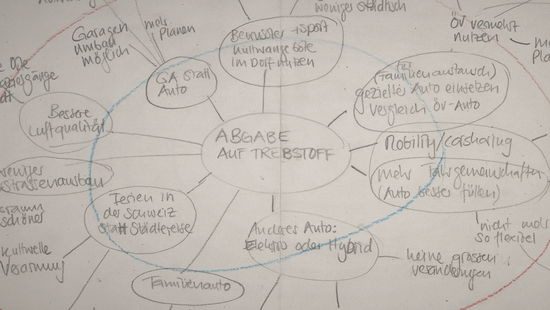 weniger
ÖV vermehrt
nutzen
Garagen
umbau
möglich
mehr
Planen
Bewusster
einkaufsziele
im Dorf nutzen
GA statt
Auto
(Familienaustausch)
gezieltes Auto einsetzen
vergleich ÖV-Auto
Bessere
Luftqualität
ABGABE
AUF TREBSTOFF
Mobility/carsharing
mehr Fahrgemeinschaften
(Auto besser füllen)
weniger
strassenausbau
Ferien in
der Schweiz
statt Städtereise
schöner
kulturelle
Verarmung
Anderes Auto:
Elektro oder Hybrid
Familienauto
nicht mehr
so flexibel
keine grossen
veränderungen